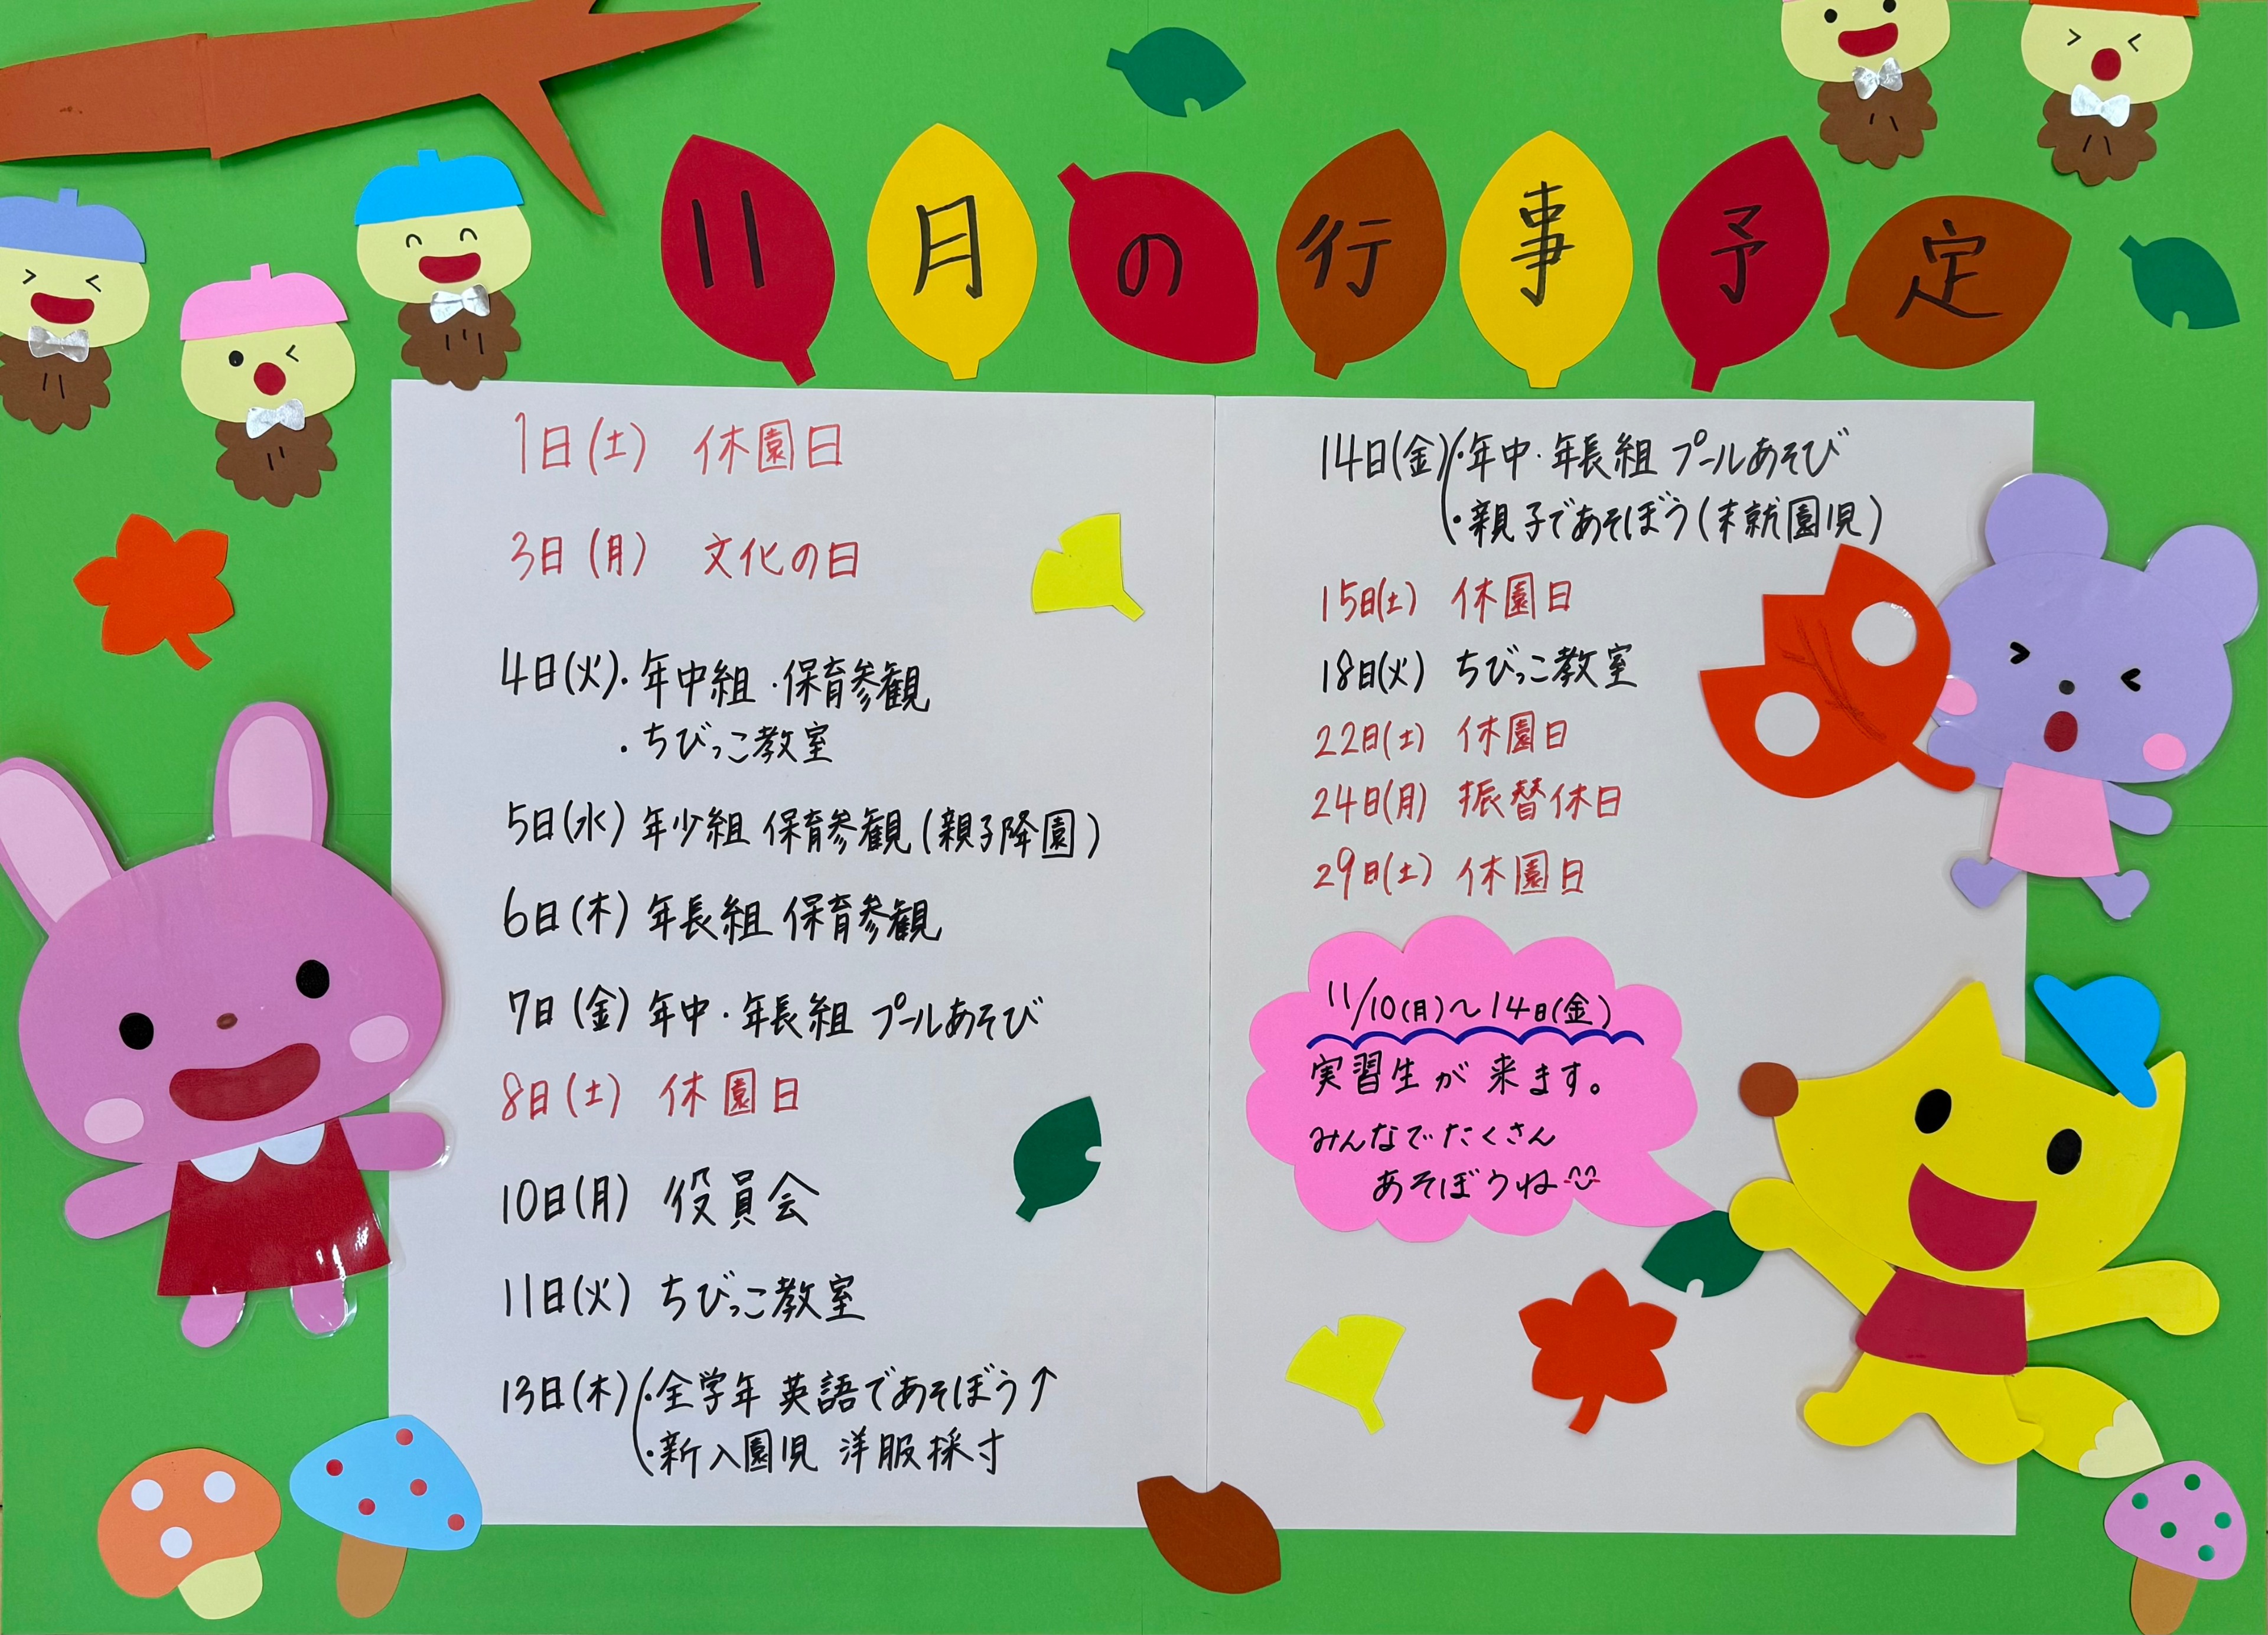 11月の行事予定
1日(土) 休園日
3日(月) 文化の日
4日(火)・年中組・保育参観
・ちびっこ教室
5日(水) 年少組 保育参観(親子降園)
6日(木) 年長組 保育参観
7日(金) 年中・年長組 プールあそび
8日(土) 休園日
10日(月) 役員会
11日(火) ちびっこ教室
13日(木)(・全学年 英語であそぼう↑
・新入園児 洋服採寸
14日(金)(・年中・年長組 プールあそび
・親子であそぼう(未就園児)
15日(土) 休園日
18日(火) ちびっこ教室
22日(土) 休園日
24日(月) 振替休日
29日(土) 休園日
11/10(月)〜14日(金)
実習生が来ます。
みんなでたくさん
あそぼうね